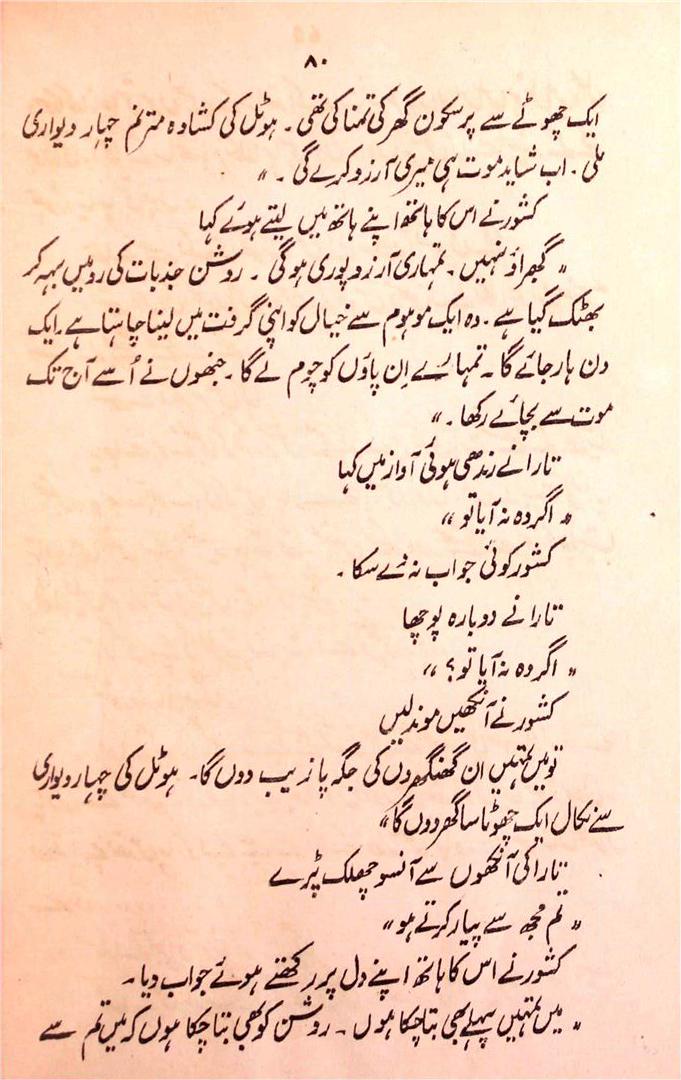 ۸۰
ایک چھوٹے سے پرسکون گھر کی تمنا کی تھی۔ ہوٹل کی کشادہ مترنم چہار دیواری
ملی۔ اب شاید موت ہی میری آرزو کرے گی۔ "
کشور نے اس کا ہاتھ اپنے ہاتھ میں لیتے ہوئے کہا
" گھبراؤ نہیں۔ تمہاری آرزو پوری ہوگی۔ روشن جذبات کی رو میں بہہ کر
بھٹک گیا ہے۔ وہ ایک موہوم سے خیال کو اپنی گرفت میں لینا چاہتا ہے۔ ایک
دن ہار جائے گا۔ تمہارے اِن پاؤں کو چوم لے گا۔ جنھوں نے اُسے آج تک
موت سے بچائے رکھا۔ "
تارا نے رندھی ہوئی آواز میں کہا
" اگر وہ نہ آیا تو "
کشور کوئی جواب نہ دے سکا۔
تارا نے دوبارہ پوچھا
" اگر وہ نہ آیا تو؟ "
کشور نے آنکھیں موند لیں
تو میں تمہیں ان گھنگھروں کی جگہ پازیب دوں گا۔ ہوٹل کی چہار دیواری
سے نکال ایک چھوٹا سا گھر دوں گا "
تارا کی آنکھوں سے آنسو چھلک پڑے
" تم مجھ سے پیار کرتے ہو "
کشور نے اس کا ہاتھ اپنے دل پر رکھتے ہوئے جواب دیا۔
" میں تمہیں پہلے بھی بتا چکا ہوں۔ روشن کو بھی بتا چکا ہوں کہ میں تم سے